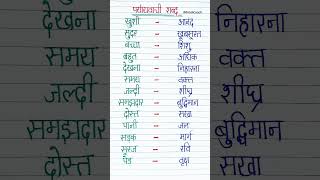 पर्यायवाची शब्द
खुशी - आनंद
सुंदर - खूबसूरत
बच्चा - शिशु
बहुत - अधिक
देखना - निहारना
समय - वक्त
जल्दी - शीघ्र
समझदार - बुद्धिमान
दोस्त - सखा
पानी - जल
सड़क - मार्ग
सूरज - रवि
पेड़ - वृक्ष
देखना
समय
जल्दी
समझदार
दोस्त
निहारना
वक्त
शीघ्र
बुद्धिमान
सखा